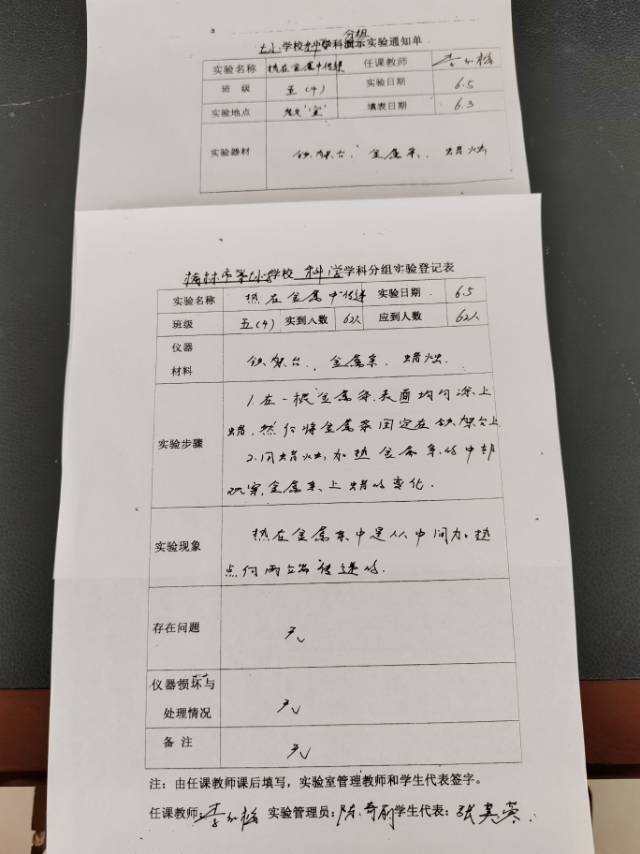 分组
七小学校科学学科演示实验通知单
实验名称 热在金属中传递 任课教师
班 级 五(4) 实验日期 6.5
实验地点 教室 填表日期 6.3
实验器材 铁架台, 金属条, 蜡烛
学校 科学学科分组实验登记表
实验名称 热在金属中传递 实验日期 6.5
班级 五(4) 实到人数 62人 应到人数 62人
仪器
材料 铁架台, 金属条, 蜡烛.
1.在一根金属条表面均匀涂上
实验步骤 蜡, 然后将金属条固定在铁架台上
2.用蜡烛加热金属条的中部
观察金属条上蜡的变化.
实验现象 热在金属条中是从中间加热
点向两端传递的.
存在问题 无
仪器损坏与
处理情况 无
备 注 无
注：由任课教师课后填写，实验室管理教师和学生代表签字。
任课教师: 实验管理员: 学生代表: